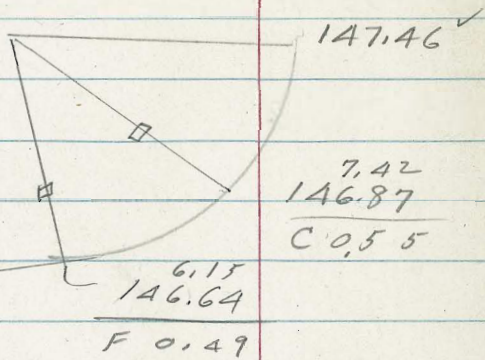 147.46 ✓
7.42
146.87
C 0.55
6.15
146.64
F 0.49